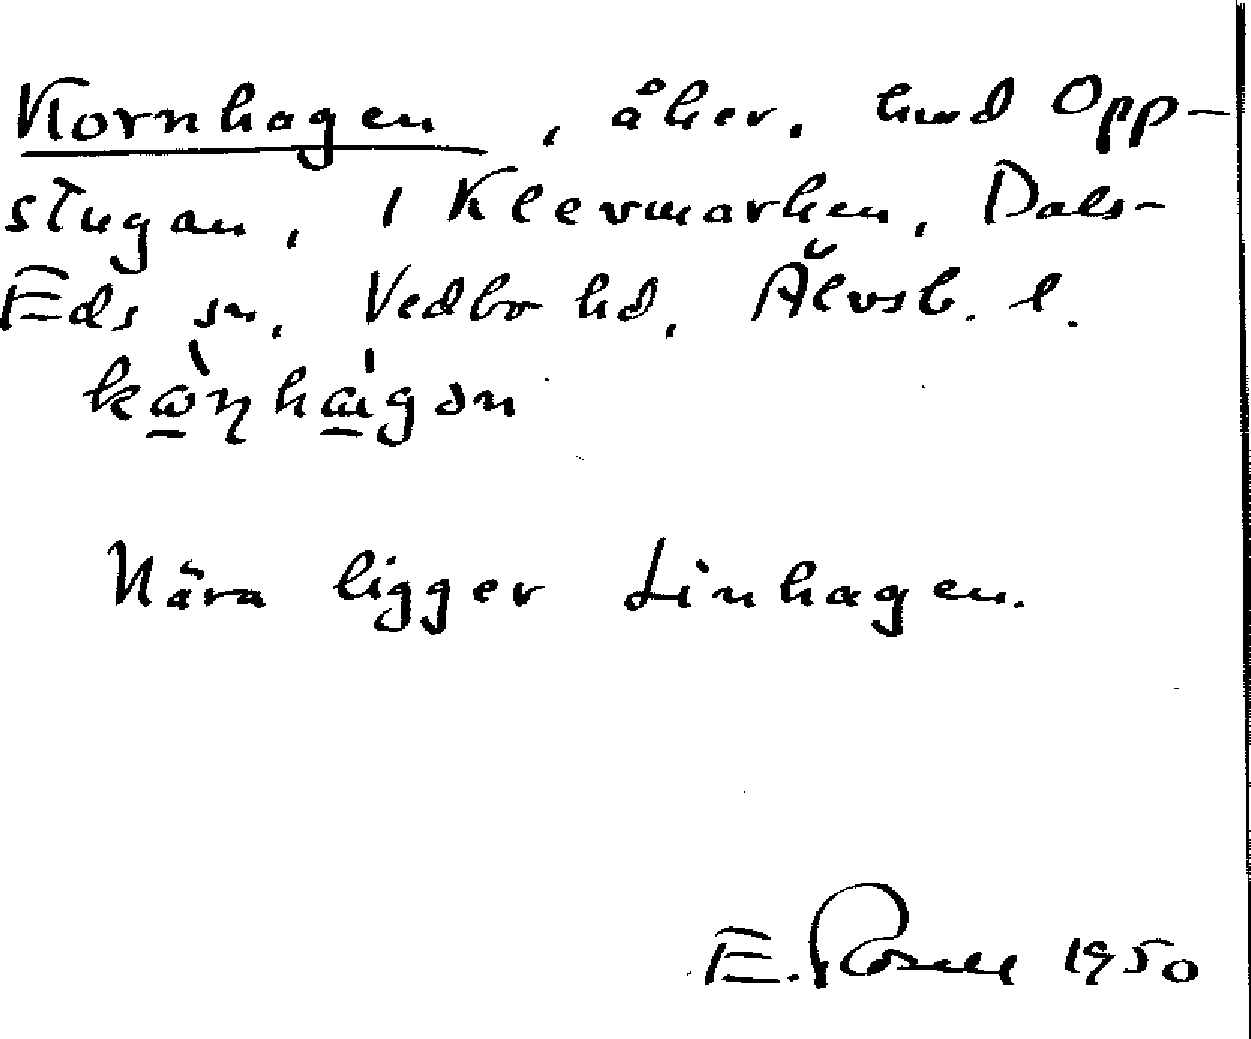 Kornhagen, åker. hmd Opp-
stugan, i Klevmarken, Dals-
Eds sn, Vedbo hd, Älvsb. l.
Nära ligger Linhagen.
E. Rosell 1950